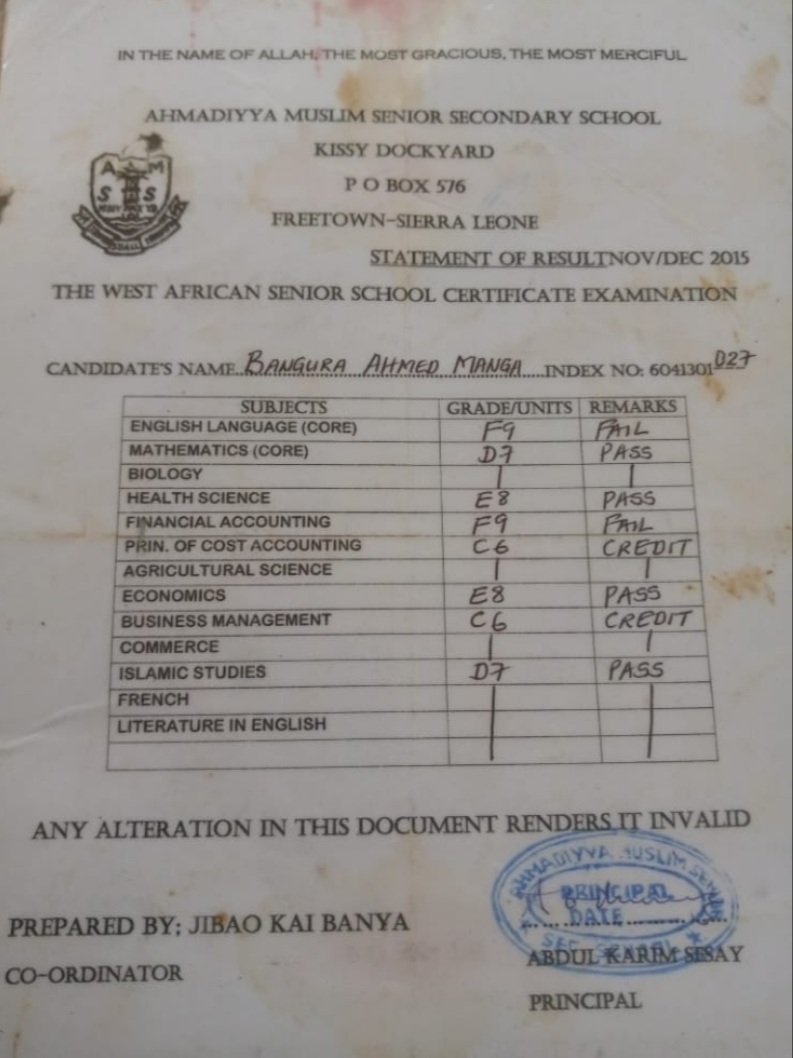 IN THE NAME OF ALLAH, THE MOST GRACIOUS, THE MOST MERCIFUL
AHMADIYYA MUSLIM SENIOR SECONDARY SCHOOL
KISSY DOCKYARD
P O BOX 576
FREETOWN-SIERRA LEONE
A M
S S S
STATEMENT OF RESULTNOV/DEC 2015
THE WEST AFRICAN SENIOR SCHOOL CERTIFICATE EXAMINATION
CANDIDATE'S NAME BANGURA AHMED MANGA INDEX NO: 6041301027
SUBJECTS GRADE/UNITS REMARKS
ENGLISH LANGUAGE (CORE) F9 FAIL
MATHEMATICS (CORE) D7 PASS
BIOLOGY
HEALTH SCIENCE E8 PASS
FINANCIAL ACCOUNTING F9 FAIL
PRIN. OF COST ACCOUNTING C6 CREDIT
AGRICULTURAL SCIENCE
ECONOMICS E8 PASS
BUSINESS MANAGEMENT C6 CREDIT
COMMERCE
ISLAMIC STUDIES D7 PASS
FRENCH
LITERATURE IN ENGLISH
ANY ALTERATION IN THIS DOCUMENT RENDERS IT INVALID
AHMADIYYA MUSLIM SEN
PRINCIPAL
DATE
SEC. SCHOOL
PREPARED BY; JIBAO KAI BANYA
ABDUL KARIM SESAY
CO-ORDINATOR
PRINCIPAL